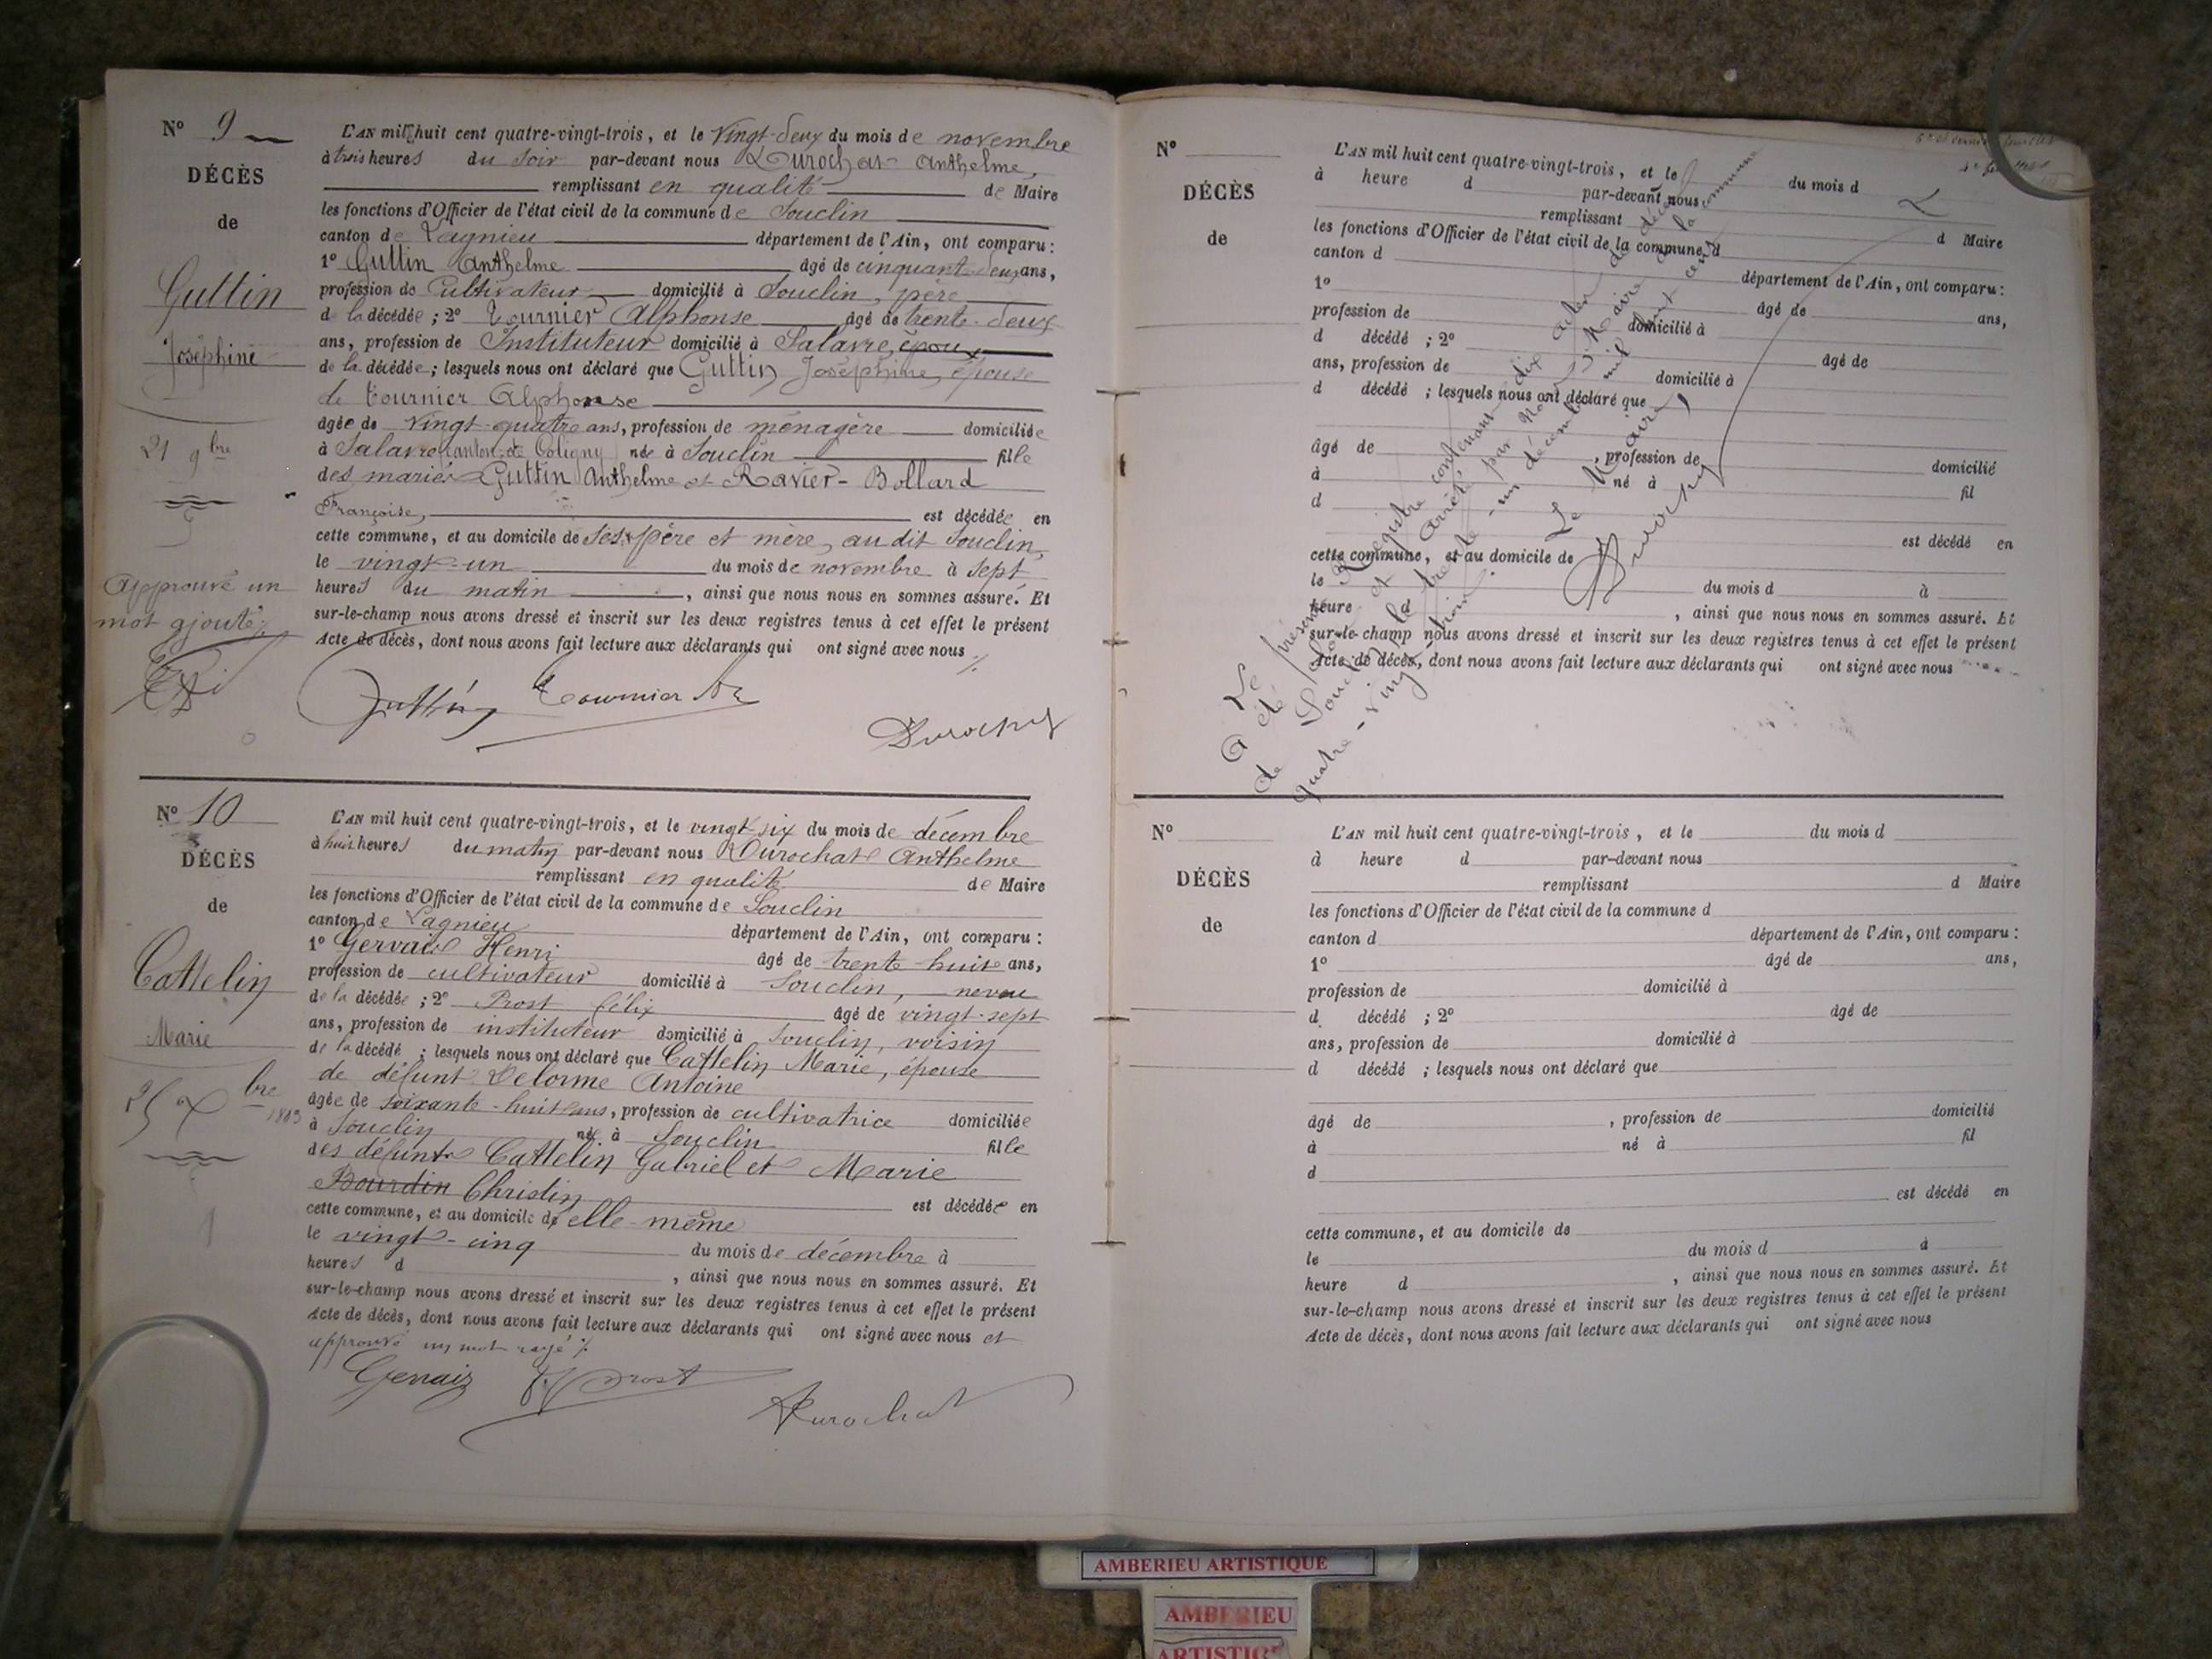 N° 9
DÉCÈS
de
Guttin
Joséphine
21 9bre
Approuvé un
mot ajouté
L'AN mil huit cent quatre-vingt-trois, et le vingt-deux du mois de novembre
à trois heures du soir par-devant nous Durochat Anthelme,
remplissant en qualité de Maire
les fonctions d'Officier de l'état civil de la commune de Souclin
canton de Lagnieu département de l'Ain, ont comparu :
1° Guttin Anthelme âgé de cinquante-deux ans,
profession de Cultivateur domicilié à Souclin, père
de la décédée ; 2° Tournier Alphonse âgé de trente-deux
ans, profession de Instituteur domicilié à Salavre, époux
de la décédée ; lesquels nous ont déclaré que Guttin Joséphine, épouse
de Tournier Alphonse
âgée de vingt-quatre ans, profession de ménagère domiciliée
à Salavre (canton de Coligny) née à Souclin fille
des mariés Guttin Anthelme et Ravier-Bollard
Françoise, est décédée en
cette commune, et au domicile de ses père et mère, au dit Souclin,
le vingt-un du mois de novembre à sept
heures du matin , ainsi que nous nous en sommes assuré. Et
sur-le-champ nous avons dressé et inscrit sur les deux registres tenus à cet effet le présent
Acte de décès, dont nous avons fait lecture aux déclarants qui ont signé avec nous ./.
Guttin Tournier Durochat
N° 10
DÉCÈS
de
Cattelin
Marie
25 Xbre
1883
L'AN mil huit cent quatre-vingt-trois, et le vingt-six du mois de décembre
à huit heures du matin par-devant nous Durochat Anthelme
remplissant en qualité de Maire
les fonctions d'Officier de l'état civil de la commune de Souclin
canton de Lagnieu département de l'Ain, ont comparu :
1° Gervais Henri âgé de trente-huit ans,
profession de cultivateur domicilié à Souclin, neveu
de la décédée ; 2° Prost Félix âgé de vingt-sept
ans, profession de instituteur domicilié à Souclin, voisin
de la décédé ; lesquels nous ont déclaré que Cattelin Marie, épouse
de défunt Delorme Antoine
âgée de soixante-huit ans, profession de cultivatrice domiciliée
à Souclin née à Souclin fille
des défunts Cattelin Gabriel et Marie
Bourdin Christin est décédée en
cette commune, et au domicile d'elle-même
le vingt-cinq du mois de décembre à
heures d , ainsi que nous nous en sommes assuré. Et
sur-le-champ nous avons dressé et inscrit sur les deux registres tenus à cet effet le présent
Acte de décès, dont nous avons fait lecture aux déclarants qui ont signé avec nous et
approuvé un mot rayé ./.
Gervais F. Prost
Durochat
N°
DÉCÈS
de
L'AN mil huit cent quatre-vingt-trois, et le du mois d
à heure d par-devant nous
remplissant d Maire
les fonctions d'Officier de l'état civil de la commune d
canton d département de l'Ain, ont comparu :
1° âgé de ans,
profession de domicilié à
d décédé ; 2° âgé de
ans, profession de domicilié à
d décédé ; lesquels nous ont déclaré que
âgé de , profession de domicilié
à né à fil
d
est décédé en
cette commune, et au domicile de
le du mois d à
heure d , ainsi que nous nous en sommes assuré. Et
sur-le-champ nous avons dressé et inscrit sur les deux registres tenus à cet effet le présent
Acte de décès, dont nous avons fait lecture aux déclarants qui ont signé avec nous
Le présent Registre contenant dix actes de décès
a été clos et arrêté par Nous, Maire de la commune
de Souclin, le trente-un décembre mil huit cent
quatre-vingt-trois.
Le Maire,
Durochat
N°
DÉCÈS
de
L'AN mil huit cent quatre-vingt-trois, et le du mois d
à heure d par-devant nous
remplissant d Maire
les fonctions d'Officier de l'état civil de la commune d
canton d département de l'Ain, ont comparu :
1° âgé de ans,
profession de domicilié à
d décédé ; 2° âgé de
ans, profession de domicilié à
d décédé ; lesquels nous ont déclaré que
âgé de , profession de domicilié
à né à fil
d
est décédé en
cette commune, et au domicile de
le du mois d à
heure d , ainsi que nous nous en sommes assuré. Et
sur-le-champ nous avons dressé et inscrit sur les deux registres tenus à cet effet le présent
Acte de décès, dont nous avons fait lecture aux déclarants qui ont signé avec nous
AMBERIEU ARTISTIQUE
AMBERIEU
ARTISTIQ